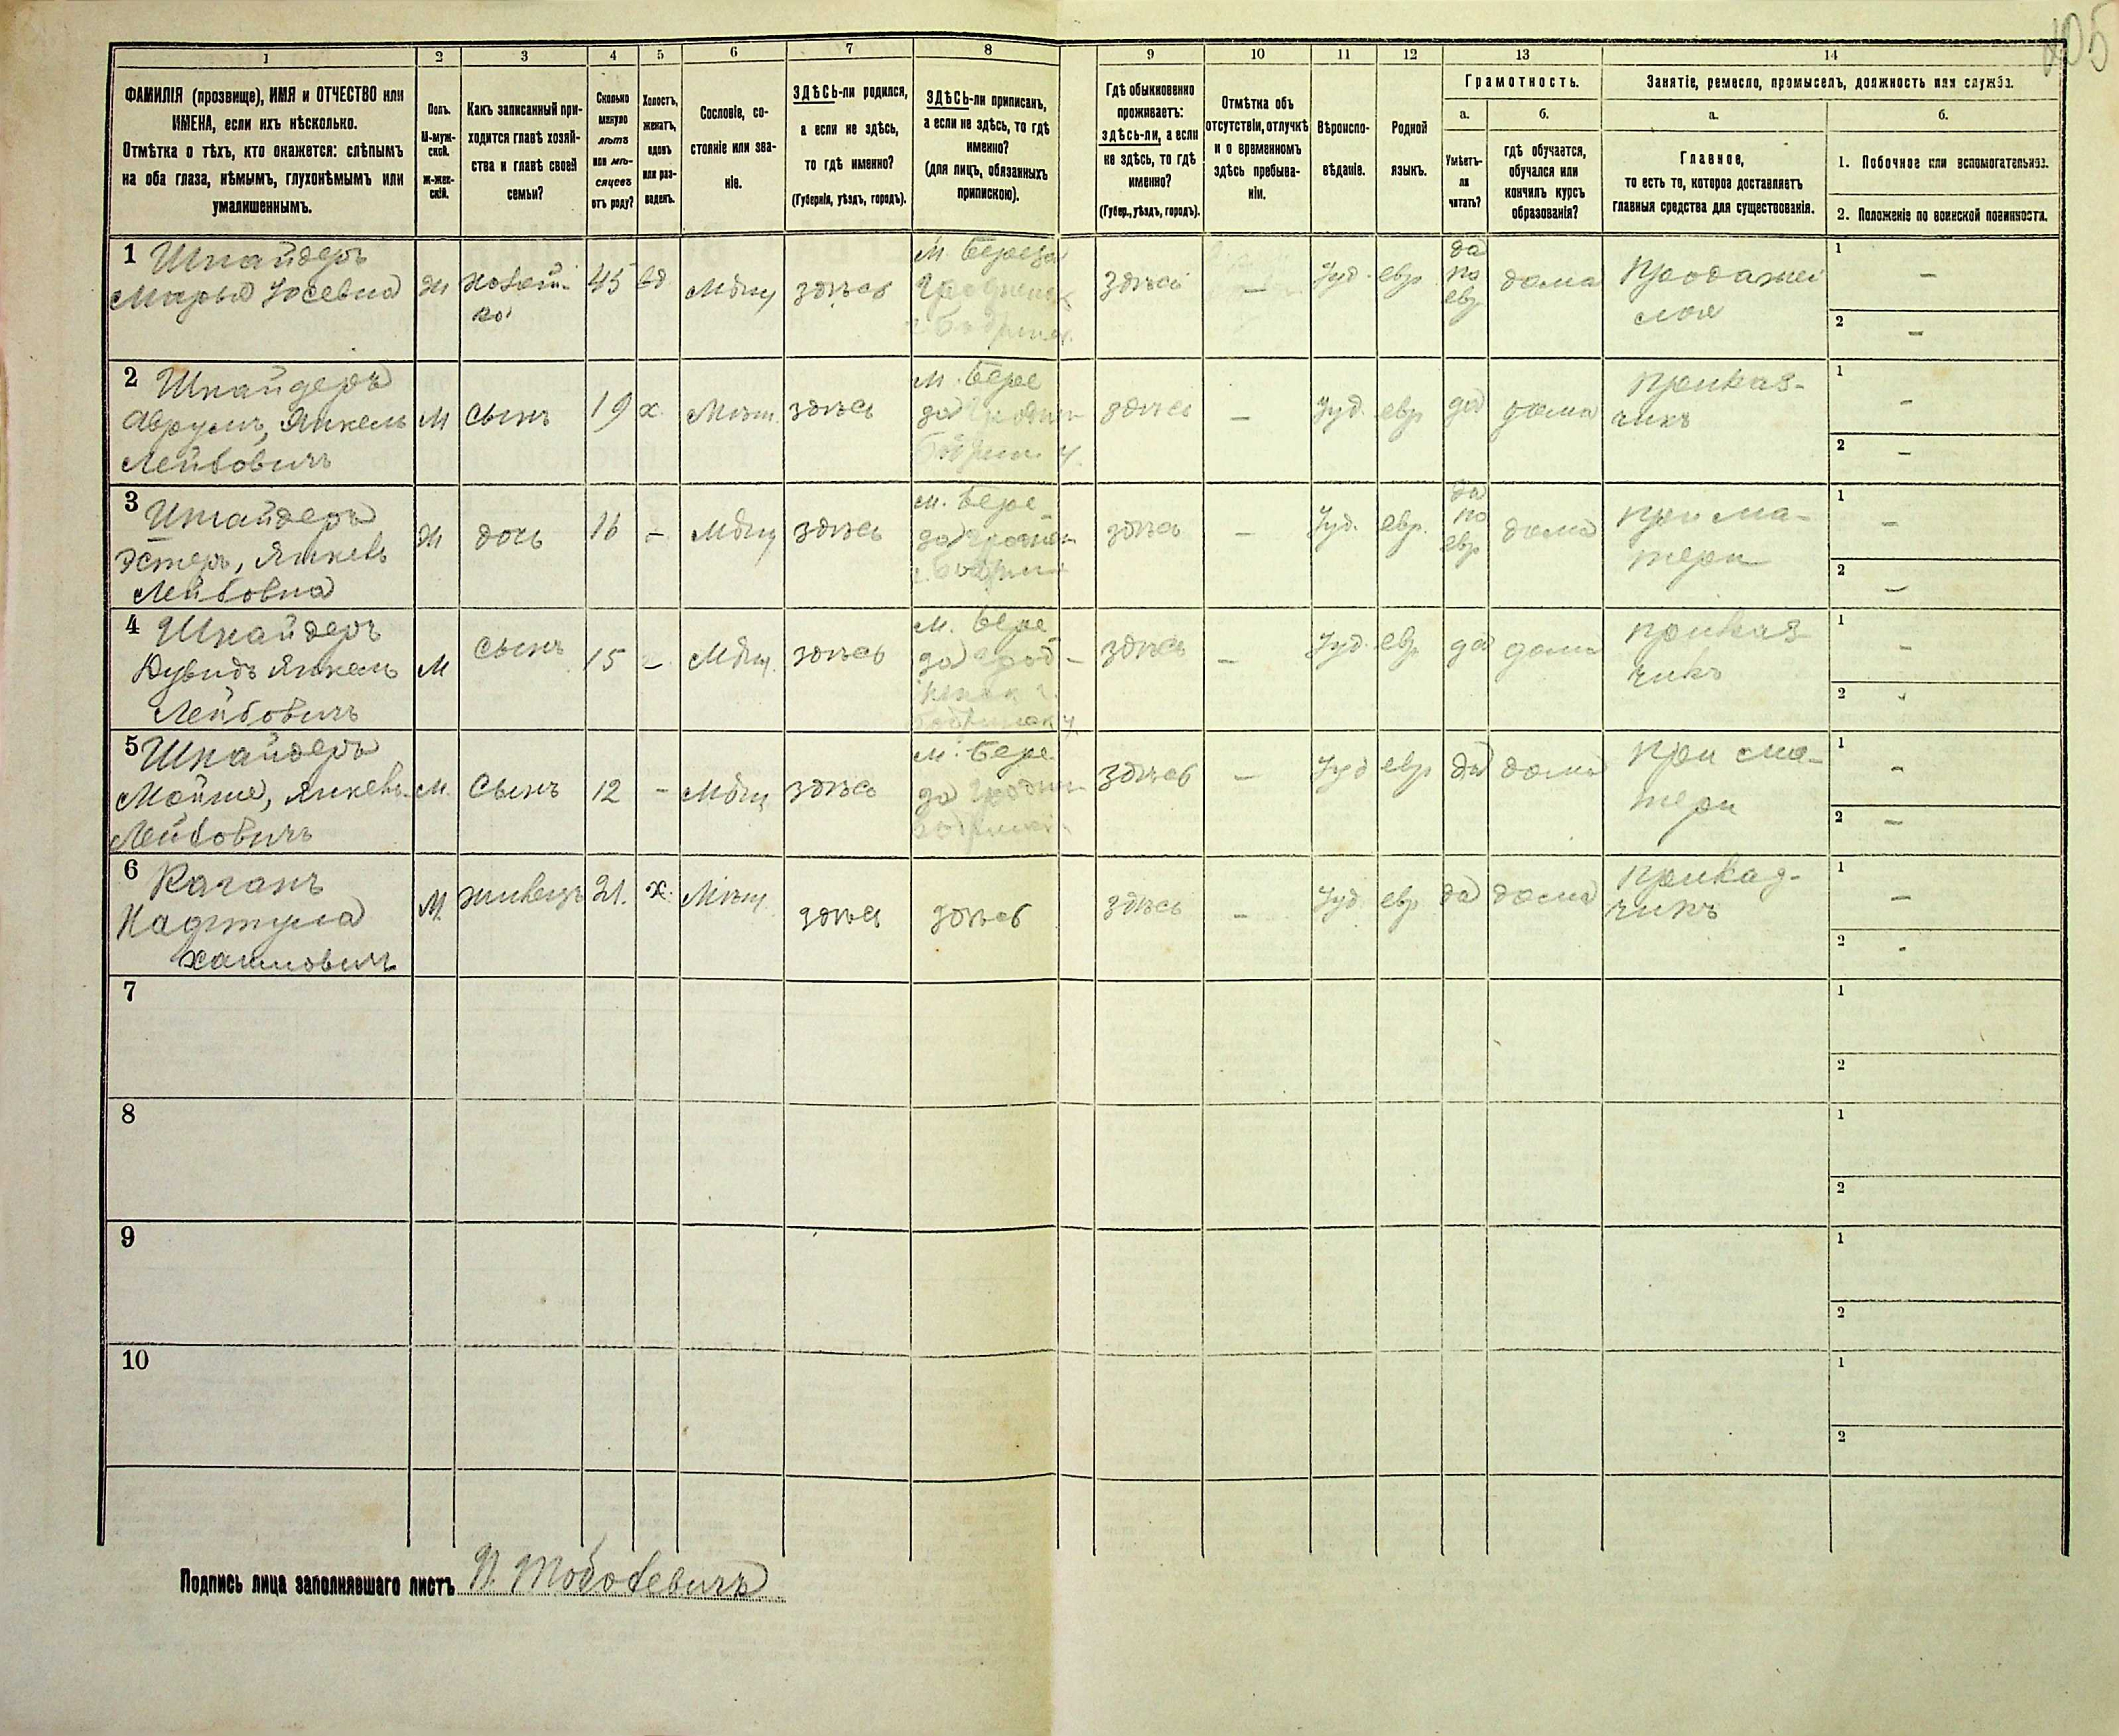 105
1 2 3 4 5 6 7 8 9 10 11 12 13 14
ФАМИЛІЯ (прозвище), ИМЯ и ОТЧЕСТВО или
ИМЕНА, если ихъ нѣсколько.
Отмѣтка о тѣхъ, кто окажется: слѣпымъ
на оба глаза, нѣмымъ, глухонѣмымъ или
умалишеннымъ.
Полъ.
М-муж-
ской.
Ж-жен-
скій.
Какъ записанный при-
ходится главѣ хозяй-
ства и главѣ своей
семьи?
Сколько
минуло
лѣтъ
или мѣ-
сяцевъ
отъ роду?
Холостъ,
женатъ,
вдовъ
или раз-
веденъ.
Сословіе, со-
стояніе или зва-
ніе.
ЗДѢСЬ-ли родился,
а если не здѣсь,
то гдѣ именно?
(Губернія, уѣздъ, городъ).
ЗДѢСЬ-ли приписанъ,
а если не здѣсь, то гдѣ
именно?
(для лицъ, обязанныхъ
припискою).
Гдѣ обыкновенно
проживаетъ:
здѣсь-ли, а если
не здѣсь, то гдѣ
именно?
(Губер., уѣздъ, городъ).
Отмѣтка объ
отсутствіи, отлучкѣ
и о временномъ
здѣсь пребыва-
ніи.
Вѣроиспо-
вѣданіе.
Родной
языкъ.
Грамотность.
а.
Умѣетъ-
ли
читать?
б.
гдѣ обучается,
обучался или
кончилъ курсъ
образованія?
Занятіе, ремесло, промыселъ, должность или служба.
а.
Главное,
то есть то, которое доставляетъ
главныя средства для существованія.
б.
1. Побочное или вспомогательное.
2. Положеніе по воинской повинности.
1 Шнайдеръ
Марья Іосевна
Ж
хозяй-
ка
45
вд
Мѣщ
здѣсь
М. Береза
здѣсь
—
Іуд.
евр
да
по
евр
дома
Продажей
1 —
2 —
2 Шнайдеръ
Аврумъ, Янкель
Лейбовичъ
М
сынъ
19
х.
Мѣщ.
здѣсь
М. Бере
за
здѣсь
—
Іуд.
евр
да
дома
приказ-
чикъ
1 -
2 —
3 Шнайдеръ
Эстеръ, Янкель
Лейбовна
Ж
дочь
16
—
Мѣщ
здѣсь
М. Бере-
за
здѣсь
—
Іуд.
евр.
да
по
евр
дома
при ма-
тери
1 —
2 —
4 Шнайдеръ
Дувидъ Янкель
Лейбовичъ
М
сынъ
15
—
Мѣщ.
здѣсь
М. Бере
за Грод-
здѣсь
—
Іуд.
евр
да
дома
приказ
чикъ
1 -
2
5 Шнайдеръ
Мойше, Янкель
Лейбовичъ
М.
Сынъ
12
-
Мѣщ
здѣсь
М. Бере
за
здѣсь
—
Іуд
евр
да
дома
при ма-
тери
1 -
2 —
6 Каганъ
Хаимовичъ
М.
жилецъ
21.
х.
Мѣщ
здѣсь
здѣсь
здѣсь
—
Іуд
евр
да
дома
приказ-
чикъ
1 —
2 -
7
1
2
8
1
2
9
1
2
10
1
2
Подпись лица заполнявшаго листъ